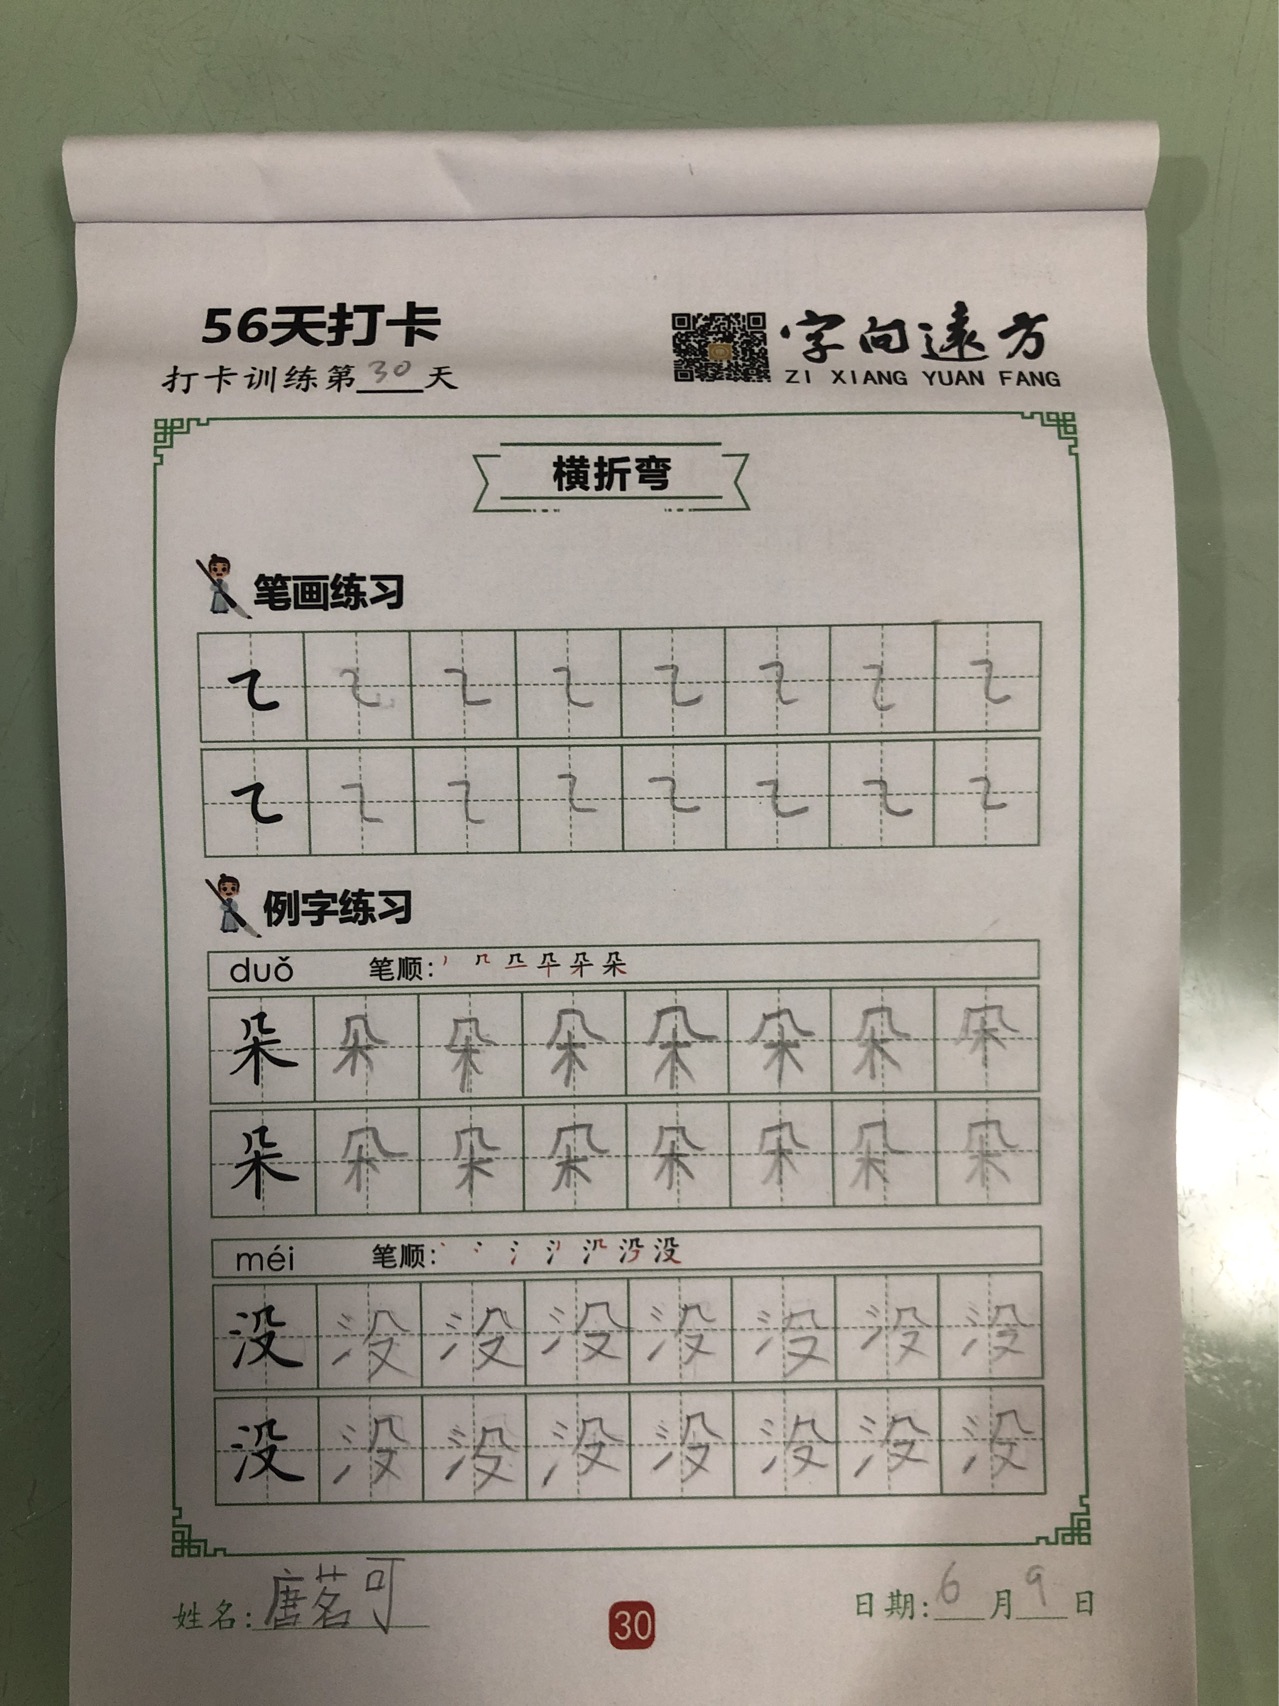 56天打卡
打卡训练第30天
字向遠方
ZI XIANG YUAN FANG
横折弯
笔画练习
㇍ ㇍ ㇍ ㇍ ㇍ ㇍ ㇍ ㇍
㇍ ㇍ ㇍ ㇍ ㇍ ㇍ ㇍ ㇍
例字练习
duǒ 笔顺: 朵
朵 朵 朵 朵 朵 朵 朵 朵
朵 朵 朵 朵 朵 朵 朵 朵
méi 笔顺: 没
没 没 没 没 没 没 没 没
没 没 没 没 没 没 没 没
姓名: 唐茗可
30
日期: 6月9日